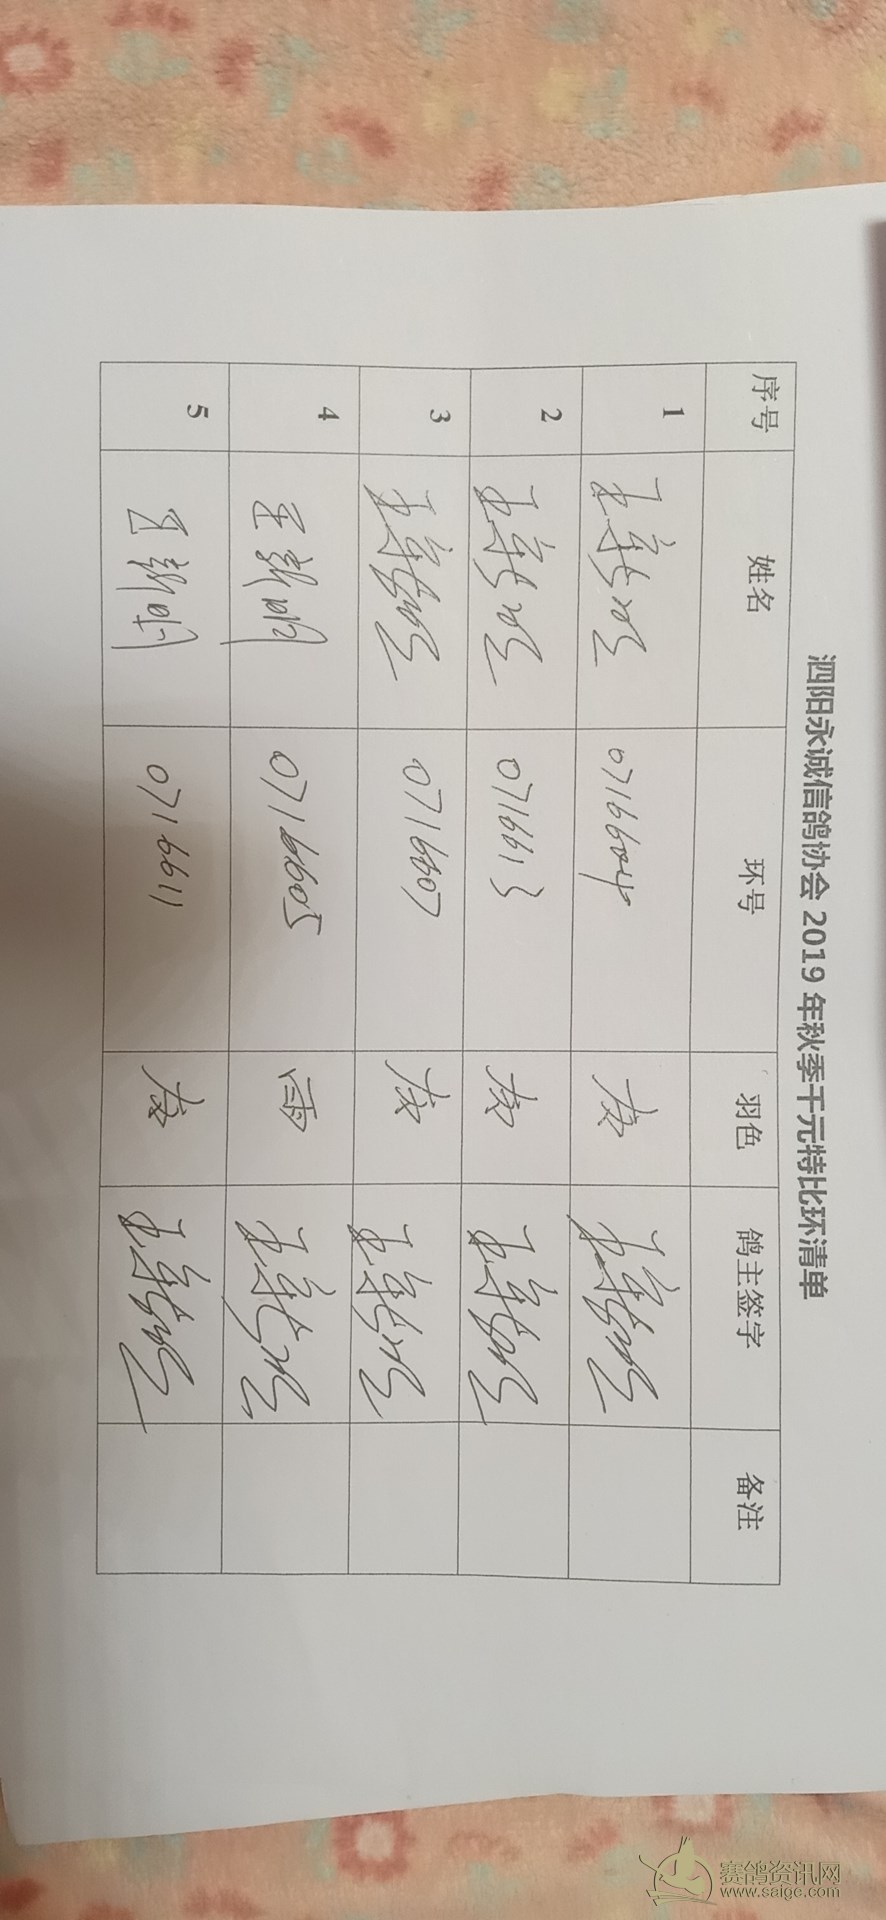 泗阳永诚信鸽协会 2019 年秋季千元特比环清单
序号 姓名 环号 羽色 鸽主签字 备注
1 王新明 0716604 灰 王新明
2 王新明 0716613 灰 王新明
3 王新明 0716607 灰 王新明
4 王新明 0716605 雨 王新明
5 王新明 0716611 灰 王新明
赛鸽资讯网
www.saigc.com